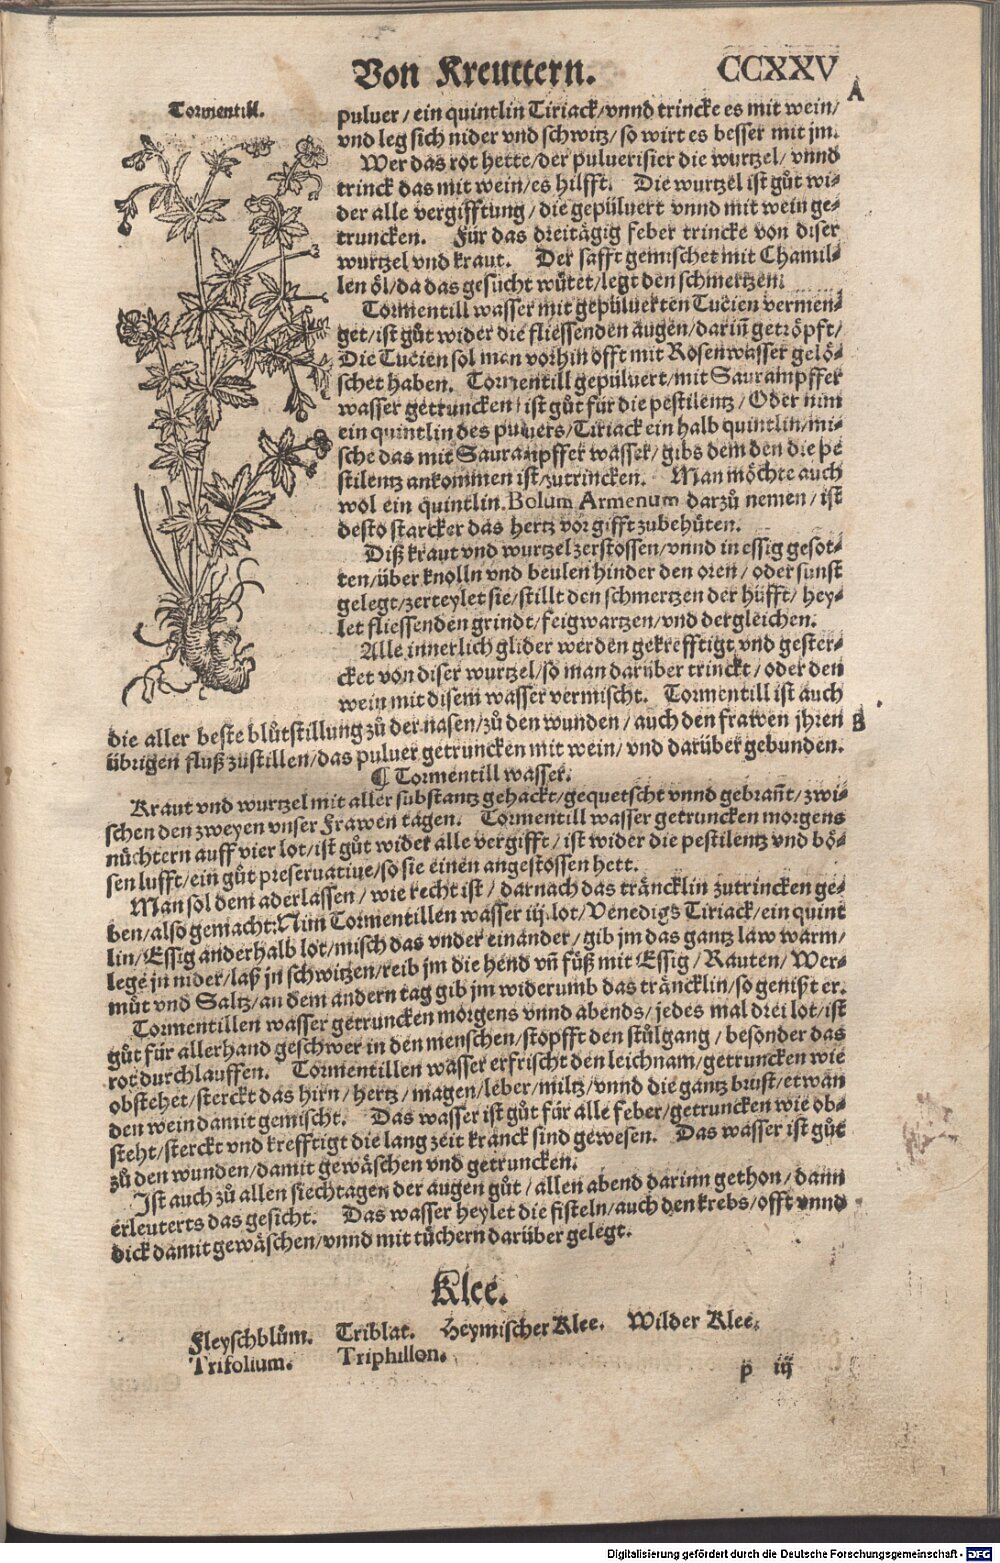 Von Kreuttern.
CCXXV
A
Tormentill.
puluer / ein quintlin Tiriack / vnnd trincke es mit wein /
vnd leg sich nider vnd schwitz / so wirt es besser mit jm.
Wer das rot hette / der puluerisier die wurtzel / vnnd
trinck das mit wein / es hilfft. Die wurtzel ist gůt wi-
der alle vergifftung / die gepüluert vnnd mit wein ge-
truncken. Für das dreitägig feber trincke von diser
wurtzel vnd kraut. Der safft gemischet mit Chamil-
len öl / da das gesücht wütet / legt den schmertzen.
Tormentill wasser mit gepüluerten Tucien vermen-
get / ist gůt wider die fliessenden augen / darin̄ getröpft /
Die Tucien sol man vorhin offt mit Rosenwasser gelö-
schet haben. Tormentill gepüluert / mit Saurampffer
wasser getruncken / ist gůt für die pestilentz / Oder nim
ein quintlin des puluers / Tiriack ein halb quintlin / mi-
sche das mit Saurampffer wasser / gibs dem den die pe
stilentz ankommen ist / zutrincken. Man möchte auch
wol ein quintlin Bolum Armenum darzů nemen / ist
desto starcker das hertz vor gifft zubehüten.
Diß kraut vnd wurtzel zerstossen / vnnd in essig gesot-
ten / über knolln vnd beulen hinder den oren / oder sunst
gelegt / zerteylet sie / stillt den schmertzen der hüfft / hey-
let fliessenden grindt / feigwartzen / vnd dergleichen.
Alle innerlich glider werden gekrefftigt vnd gester-
cket von diser wurtzel / so man darüber trinckt / oder den
wein mit disem wasser vermischt. Tormentill ist auch
die aller beste blůtstillung zů der nasen / zů den wunden / auch den frawen jhren
B
übrigen fluß zustillen / das puluer getruncken mit wein / vnd darüber gebunden.
¶ Tormentill wasser.
Kraut vnd wurtzel mit aller substantz gehackt / gequetscht vnnd gebran̄t / zwi-
schen den zweyen vnser Frawen tagen. Tormentill wasser getruncken morgens
nüchtern auff vier lot / ist gůt wider alle vergifft / ist wider die pestilentz vnd bö-
sen lufft / ein gůt preseruatiue / so sie einen angestossen hett.
Man sol dem aderlassen / wie recht ist / darnach das träncklin zutrincken ge-
ben / also gemacht: Nim Tormentillen wasser iij. lot / Venedigs Tiriack / ein quint
lin / Essig anderhalb lot / misch das vnder einander / gib jm das gantz law warm /
lege jn nider / laß jn schwitzen / reib jm die hend vn̄ füß mit Essig / Rauten / Wer-
můt vnd Saltz / an dem andern tag gib jm widerumb das träncklin / so genißt er.
Tormentillen wasser getruncken morgens vnnd abends / jedes mal drei lot / ist
gůt für allerhand geschwer in den menschen / stopfft den stůlgang / besonder das
rot durchlauffen. Tormentillen wasser erfrischt den leichnam / getruncken wie
obstehet / sterckt das hirn / hertz / magen / leber / miltz / vnnd die gantz brust / etwan
den wein damit gemischt. Das wasser ist gůt für alle feber / getruncken wie ob-
steht / sterckt vnd krefftigt die lang zeit kranck sind gewesen. Das wasser ist gůt
zů den wunden / damit gewäschen vnd getruncken.
Ist auch zů allen siechtagen der augen gůt / allen abend darinn gethon / dann
erleuterts das gesicht. Das wasser heylet die fisteln / auch den krebs / offt vnnd
dick damit gewäschen / vnnd mit tüchern darüber gelegt.
Klee.
Fleyschblům. Triblat. Heymischer Klee. Wilder Klee.
Trifolium. Triphillon.
p iij
Digitalisierung gefördert durch die Deutsche Forschungsgemeinschaft - DFG